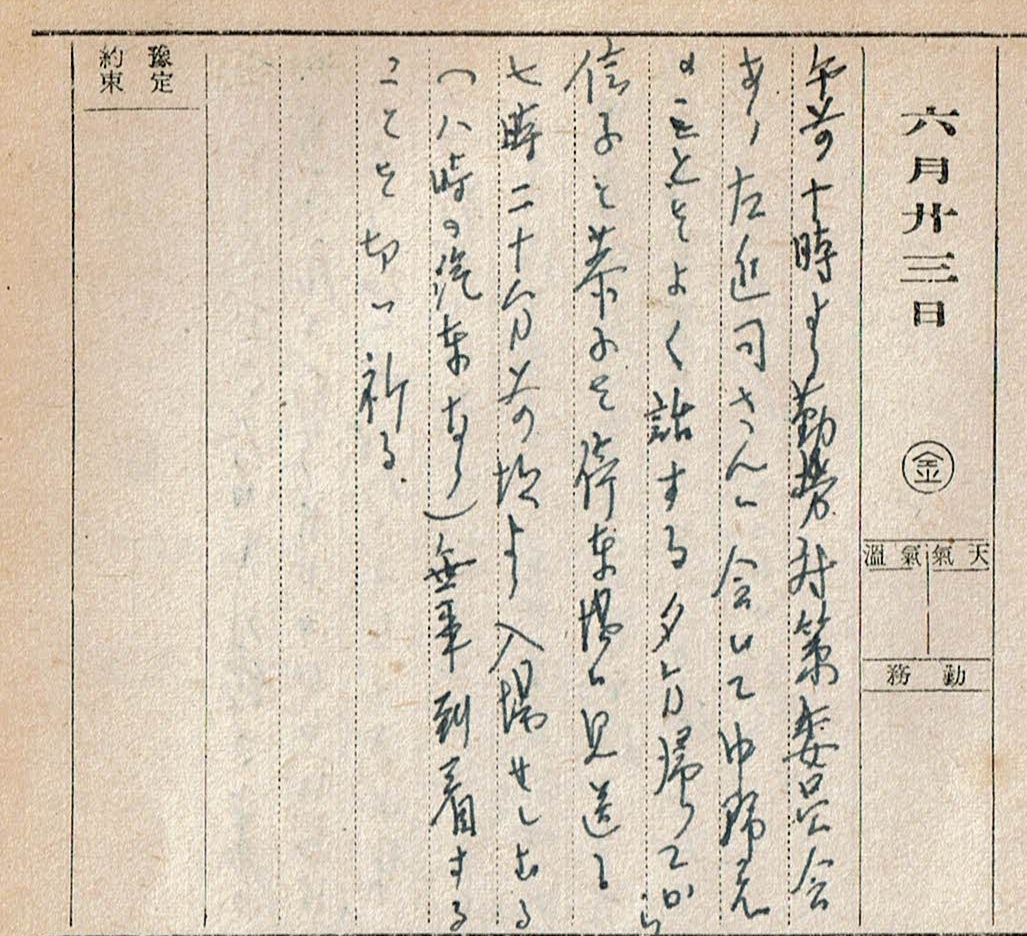 六月廿三日
金
天氣 氣溫
勤務
午前十時より勤勞対策委員会
あり左近司さんに会いて中野君
のことをよく話する夕方帰つてから
信子と恭子を停車場に見送る
七時二十分前の坂より入場せしむる
（八時の汽車なり）無事到着する
ことを切に祈る
豫定
約束